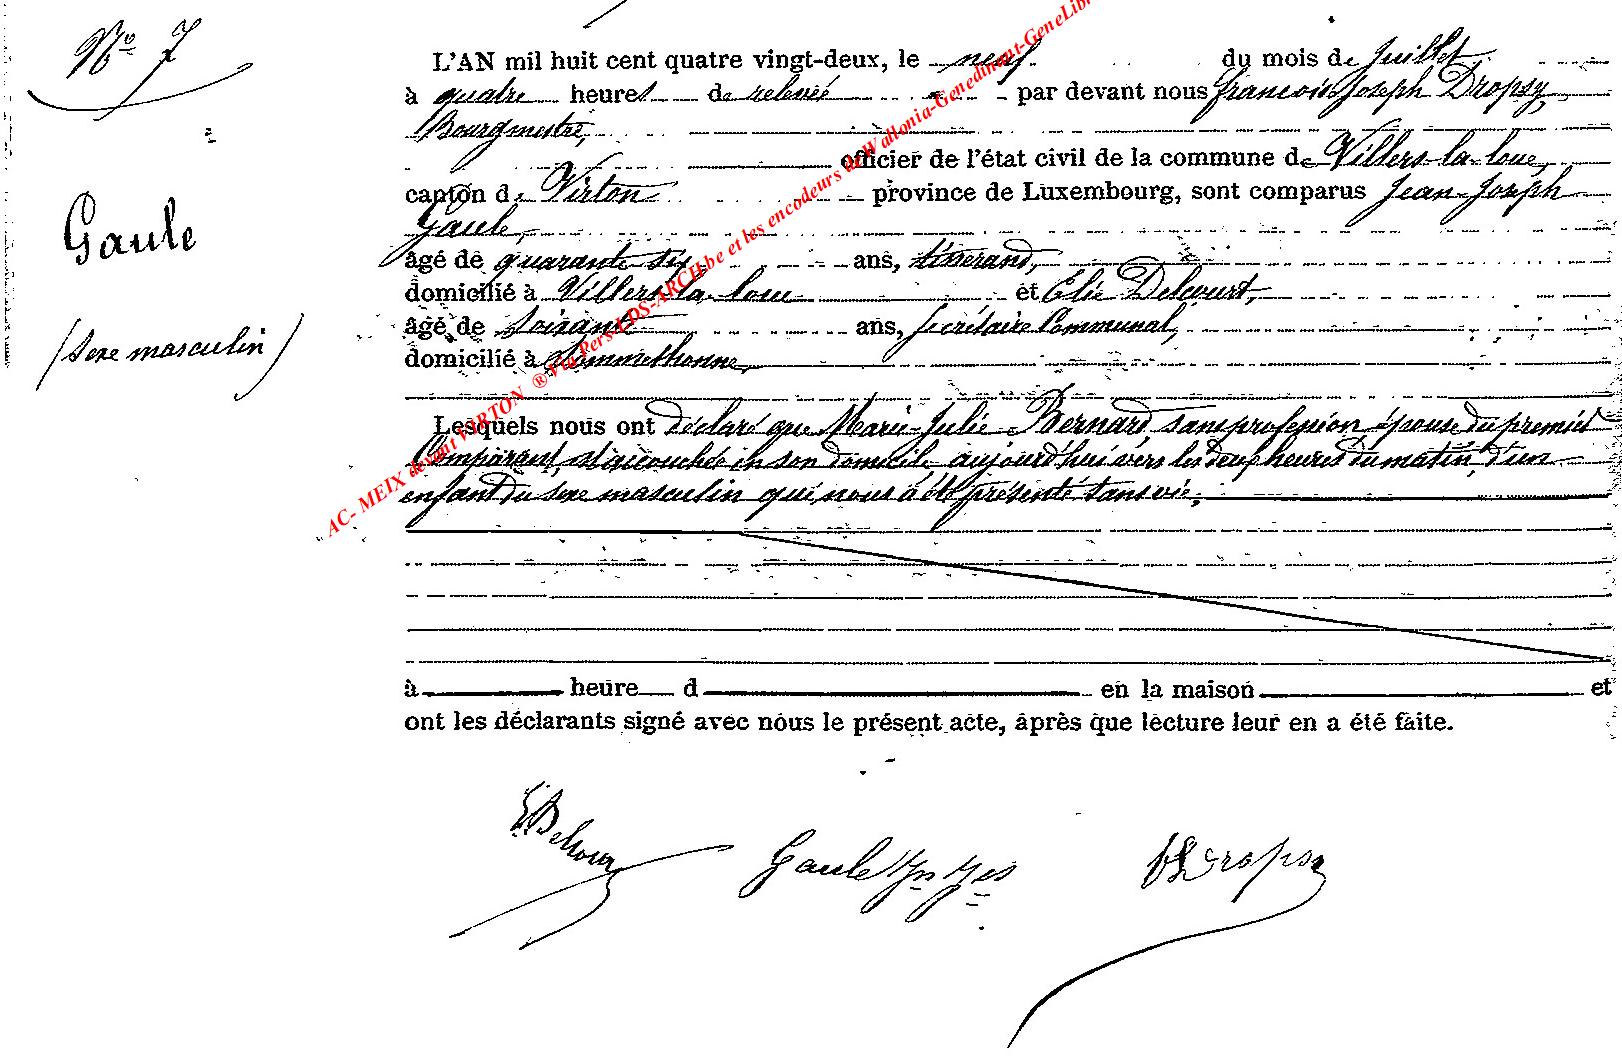 N° 7
Gaule
(Sexe masculin)
L'AN mil huit cent quatre vingt-deux, le neuf du mois de Juillet
à quatre heures de relevée par devant nous françois Joseph Dropsy,
Bourgmestre,
officier de l'état civil de la commune de Villers-la-loue,
canton de Virton province de Luxembourg, sont comparus Jean-Joseph
Gaule,
âgé de quarante six ans, tisserand,
domicilié à Villers-la-loue et Elie Delcourt,
âgé de soixante ans, secrétaire Communal,
domicilié à Sommethonne,
Lesquels nous ont déclaré que Marie-Julie Bernard sans profession épouse du premier
Comparant, est accouchée en son domicile aujourd'hui vers les deux heures du matin d'un
enfant du sexe masculin qui nous a été présenté sans vie.
à heure d en la maison et
ont les déclarants signé avec nous le présent acte, après que lecture leur en a été faite.
Gaule Jn Jes Dropsy
AC- MEIX devant VIRTON ® Via Pers-LDS-ARCH.be et les encodeurs de Wallonia-Genedinant-GeneLibr